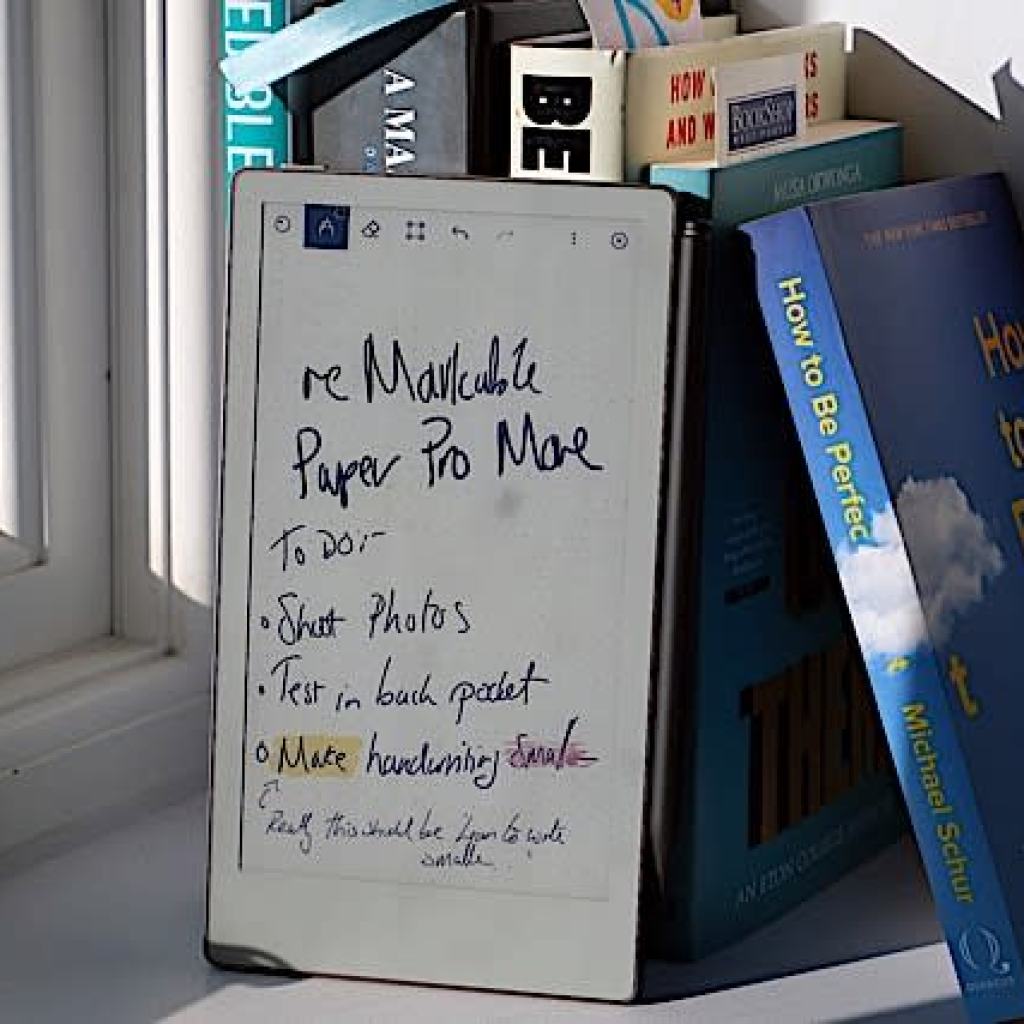 EDIBLE
A MA
BE
HOW
KS
AND W
RS
BOOKSHOP
MUSA OKWONGA
THE NEW YORK TIMES BESTSELLER
reMarkable
Paper Pro Move
To Do:-
Shoot Photos
Test in back pocket
Make handwriting smaller
Really this should be learn to write
smaller
How to Be Perfect
Michael Schur
How
to
t
THEM
AN ETON COLLEGE
QUERCUS